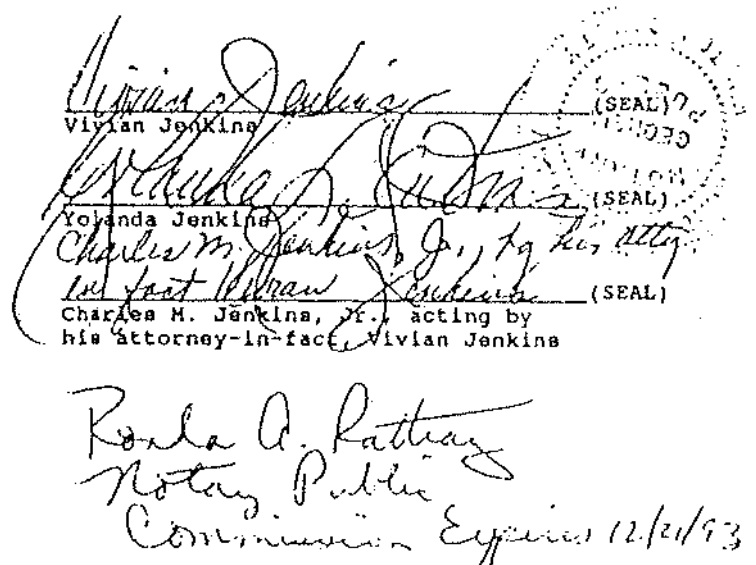 Vivian Jenkins (SEAL)
Vivian Jenkins
Yolanda (SEAL)
Yolanda Jenkins
Charles M. Jenkins, Jr., by his atty.
in fact Vivian Jenkins (SEAL)
Charles M. Jenkins, Jr., acting by
his attorney-in-fact, Vivian Jenkins
Ronda A. Rattray
Notary Public
Commission Expires 12/21/93